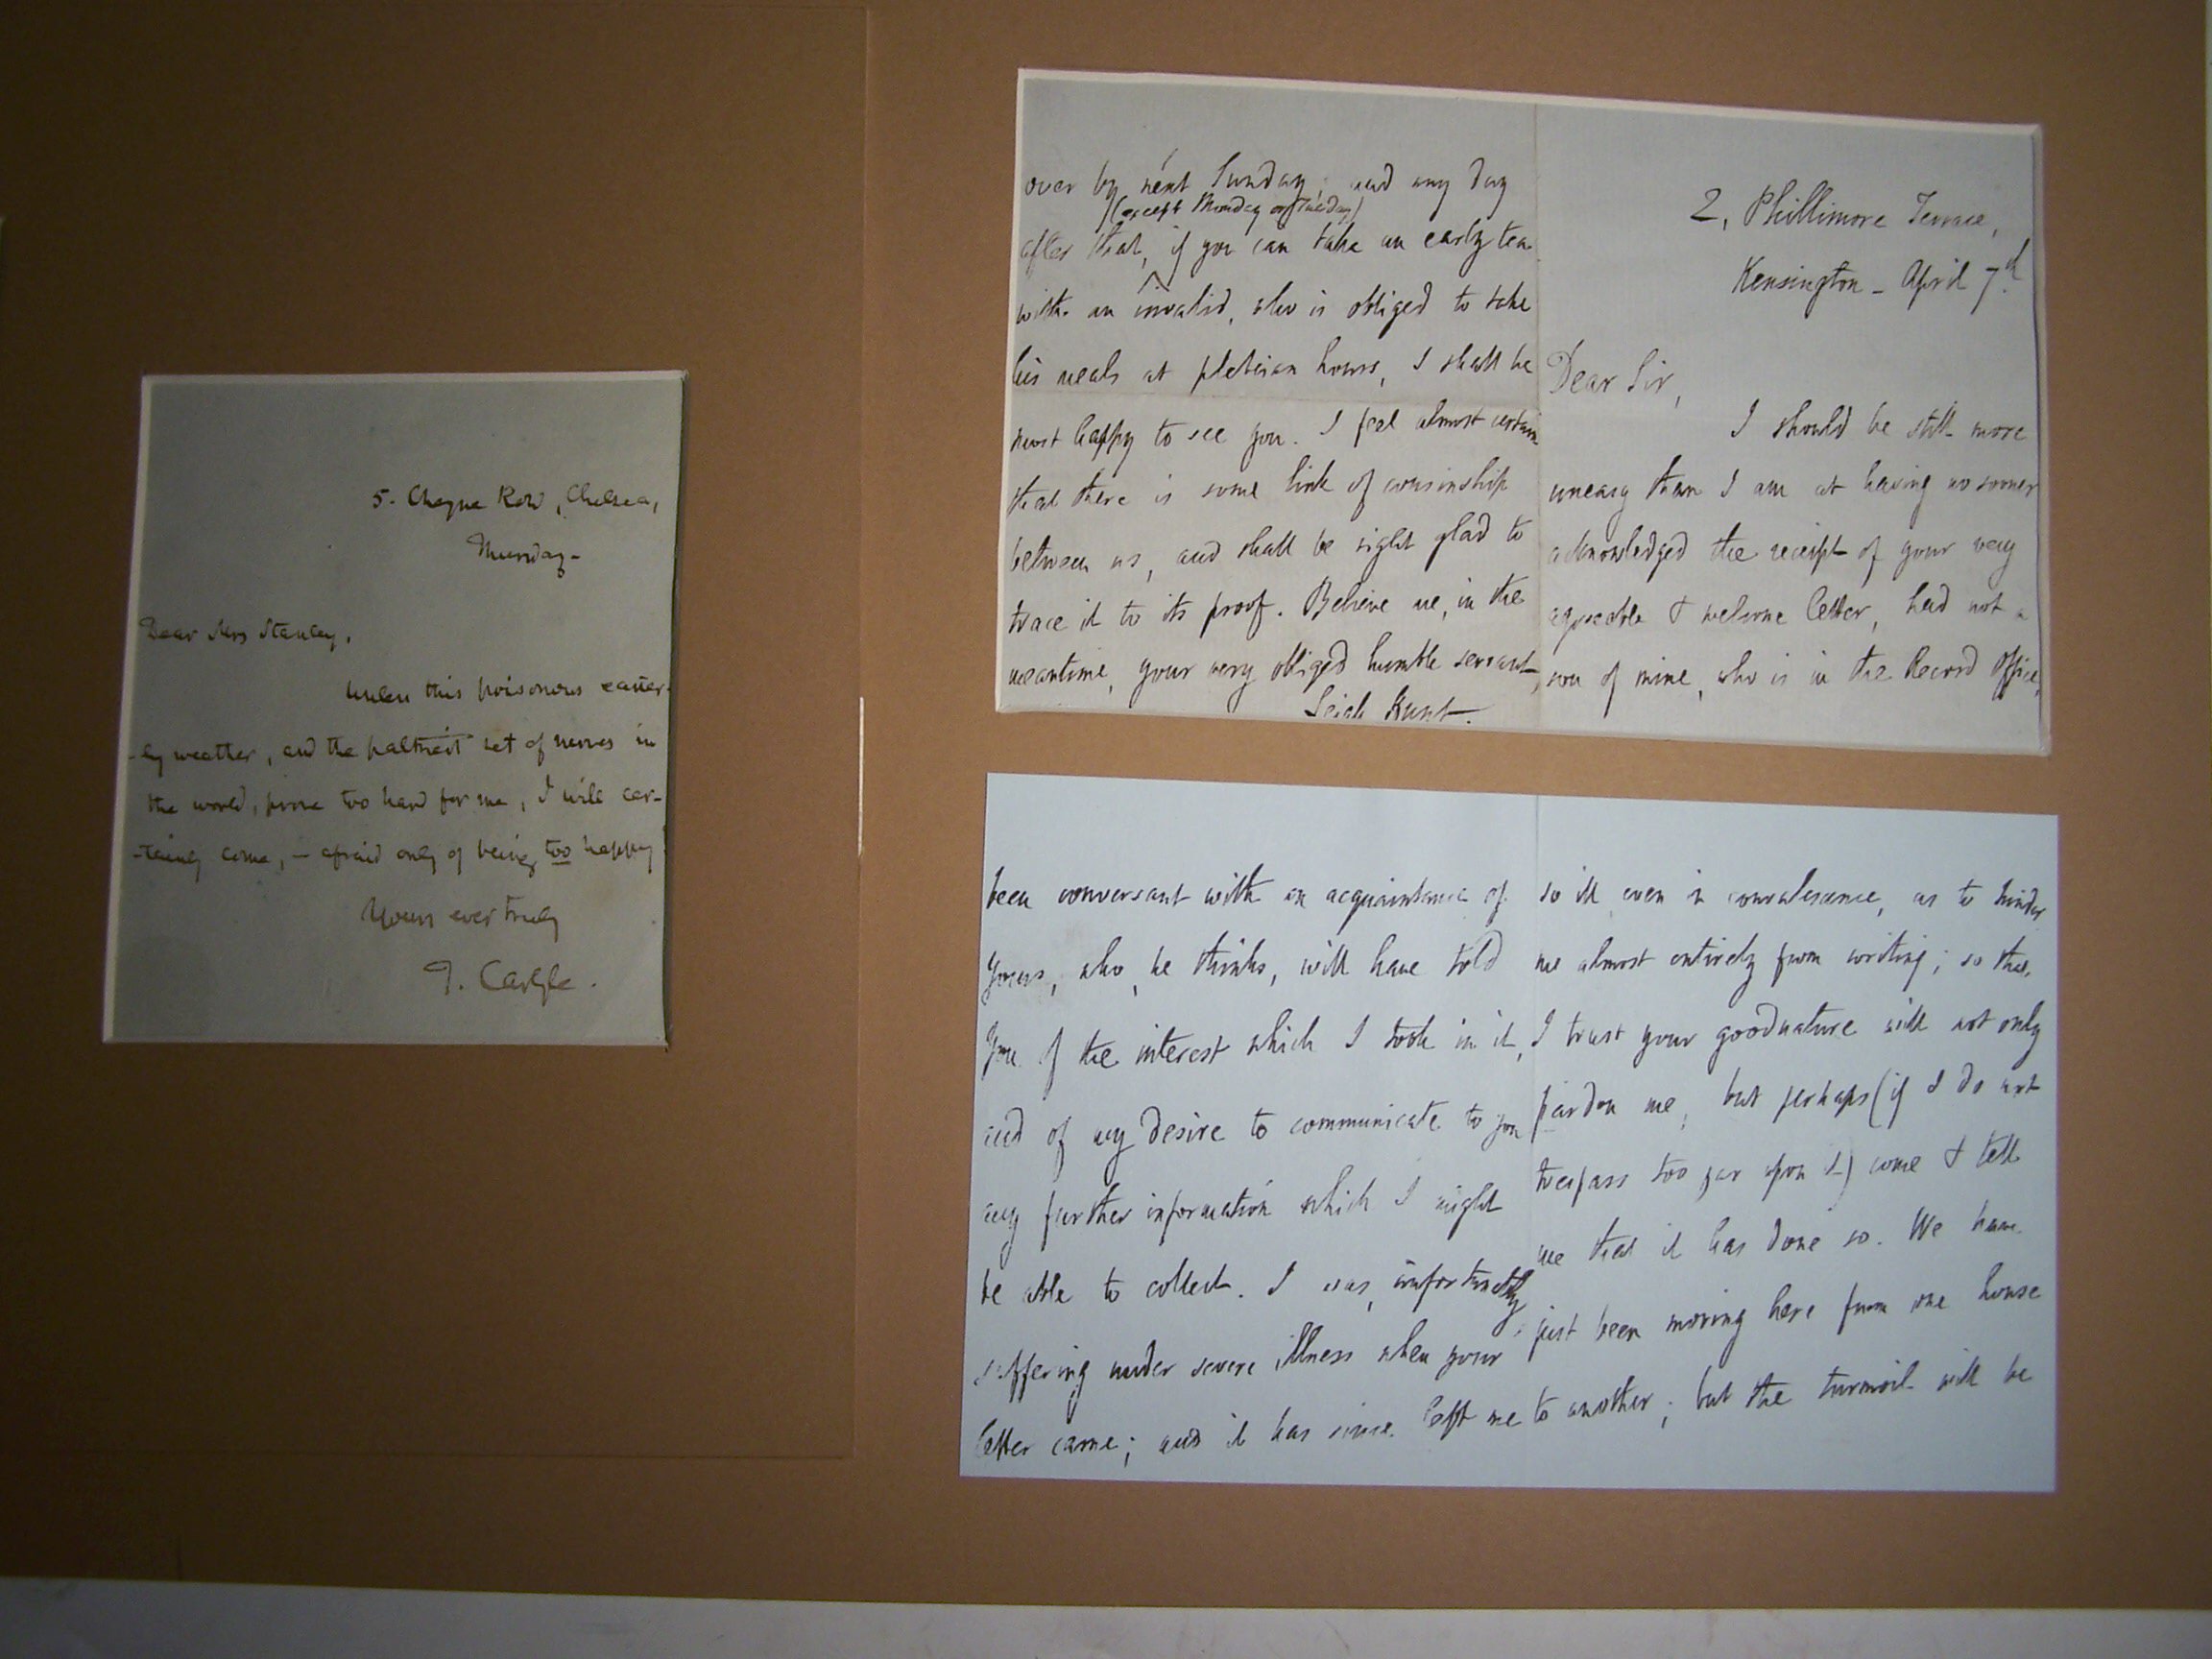 5. Cheyne Row, Chelsea,
Dear Mrs Stanley,
Unless this poisonous easter-
-ly weather, and the paltriest set of nerves in
the world, prove too hard for me, I will cer-
-tainly come, — afraid only of being too happy!
Yours ever truly
T. Carlyle.
2, Phillimore Terrace,
Kensington - April 7th
Dear Sir,
I should be still more
uneasy than I am at having no sooner
acknowledged the receipt of your very
agreeable & welcome letter, had not a
son of mine, who is in the Record Office,
been conversant with an acquaintance of
yours, who, he thinks, will have told
you of the interest which I took in it,
and of my desire to communicate to you
any further information which I might
be able to collect. I was, unfortunately,
suffering under severe illness when your
letter came; and it has since left me
so ill even in convalescence, as to hinder
me almost entirely from writing; so that
I trust your goodnature will not only
pardon me, but perhaps (if I do not
trespass too far upon it) come & tell
me that it has done so. We have
just been moving here from one house
to another; but the turmoil will be
over by next Sunday; and any day
(except Monday or Tuesday)
after that, if you can take an early tea
with an invalid, who is obliged to take
his meals at plebeian hours, I shall be
most happy to see you. I feel almost certain
that there is some link of cousinship
between us, and shall be right glad to
trace it to its proof. Believe me, in the
meantime, your very obliged humble servant,
Leigh Hunt.